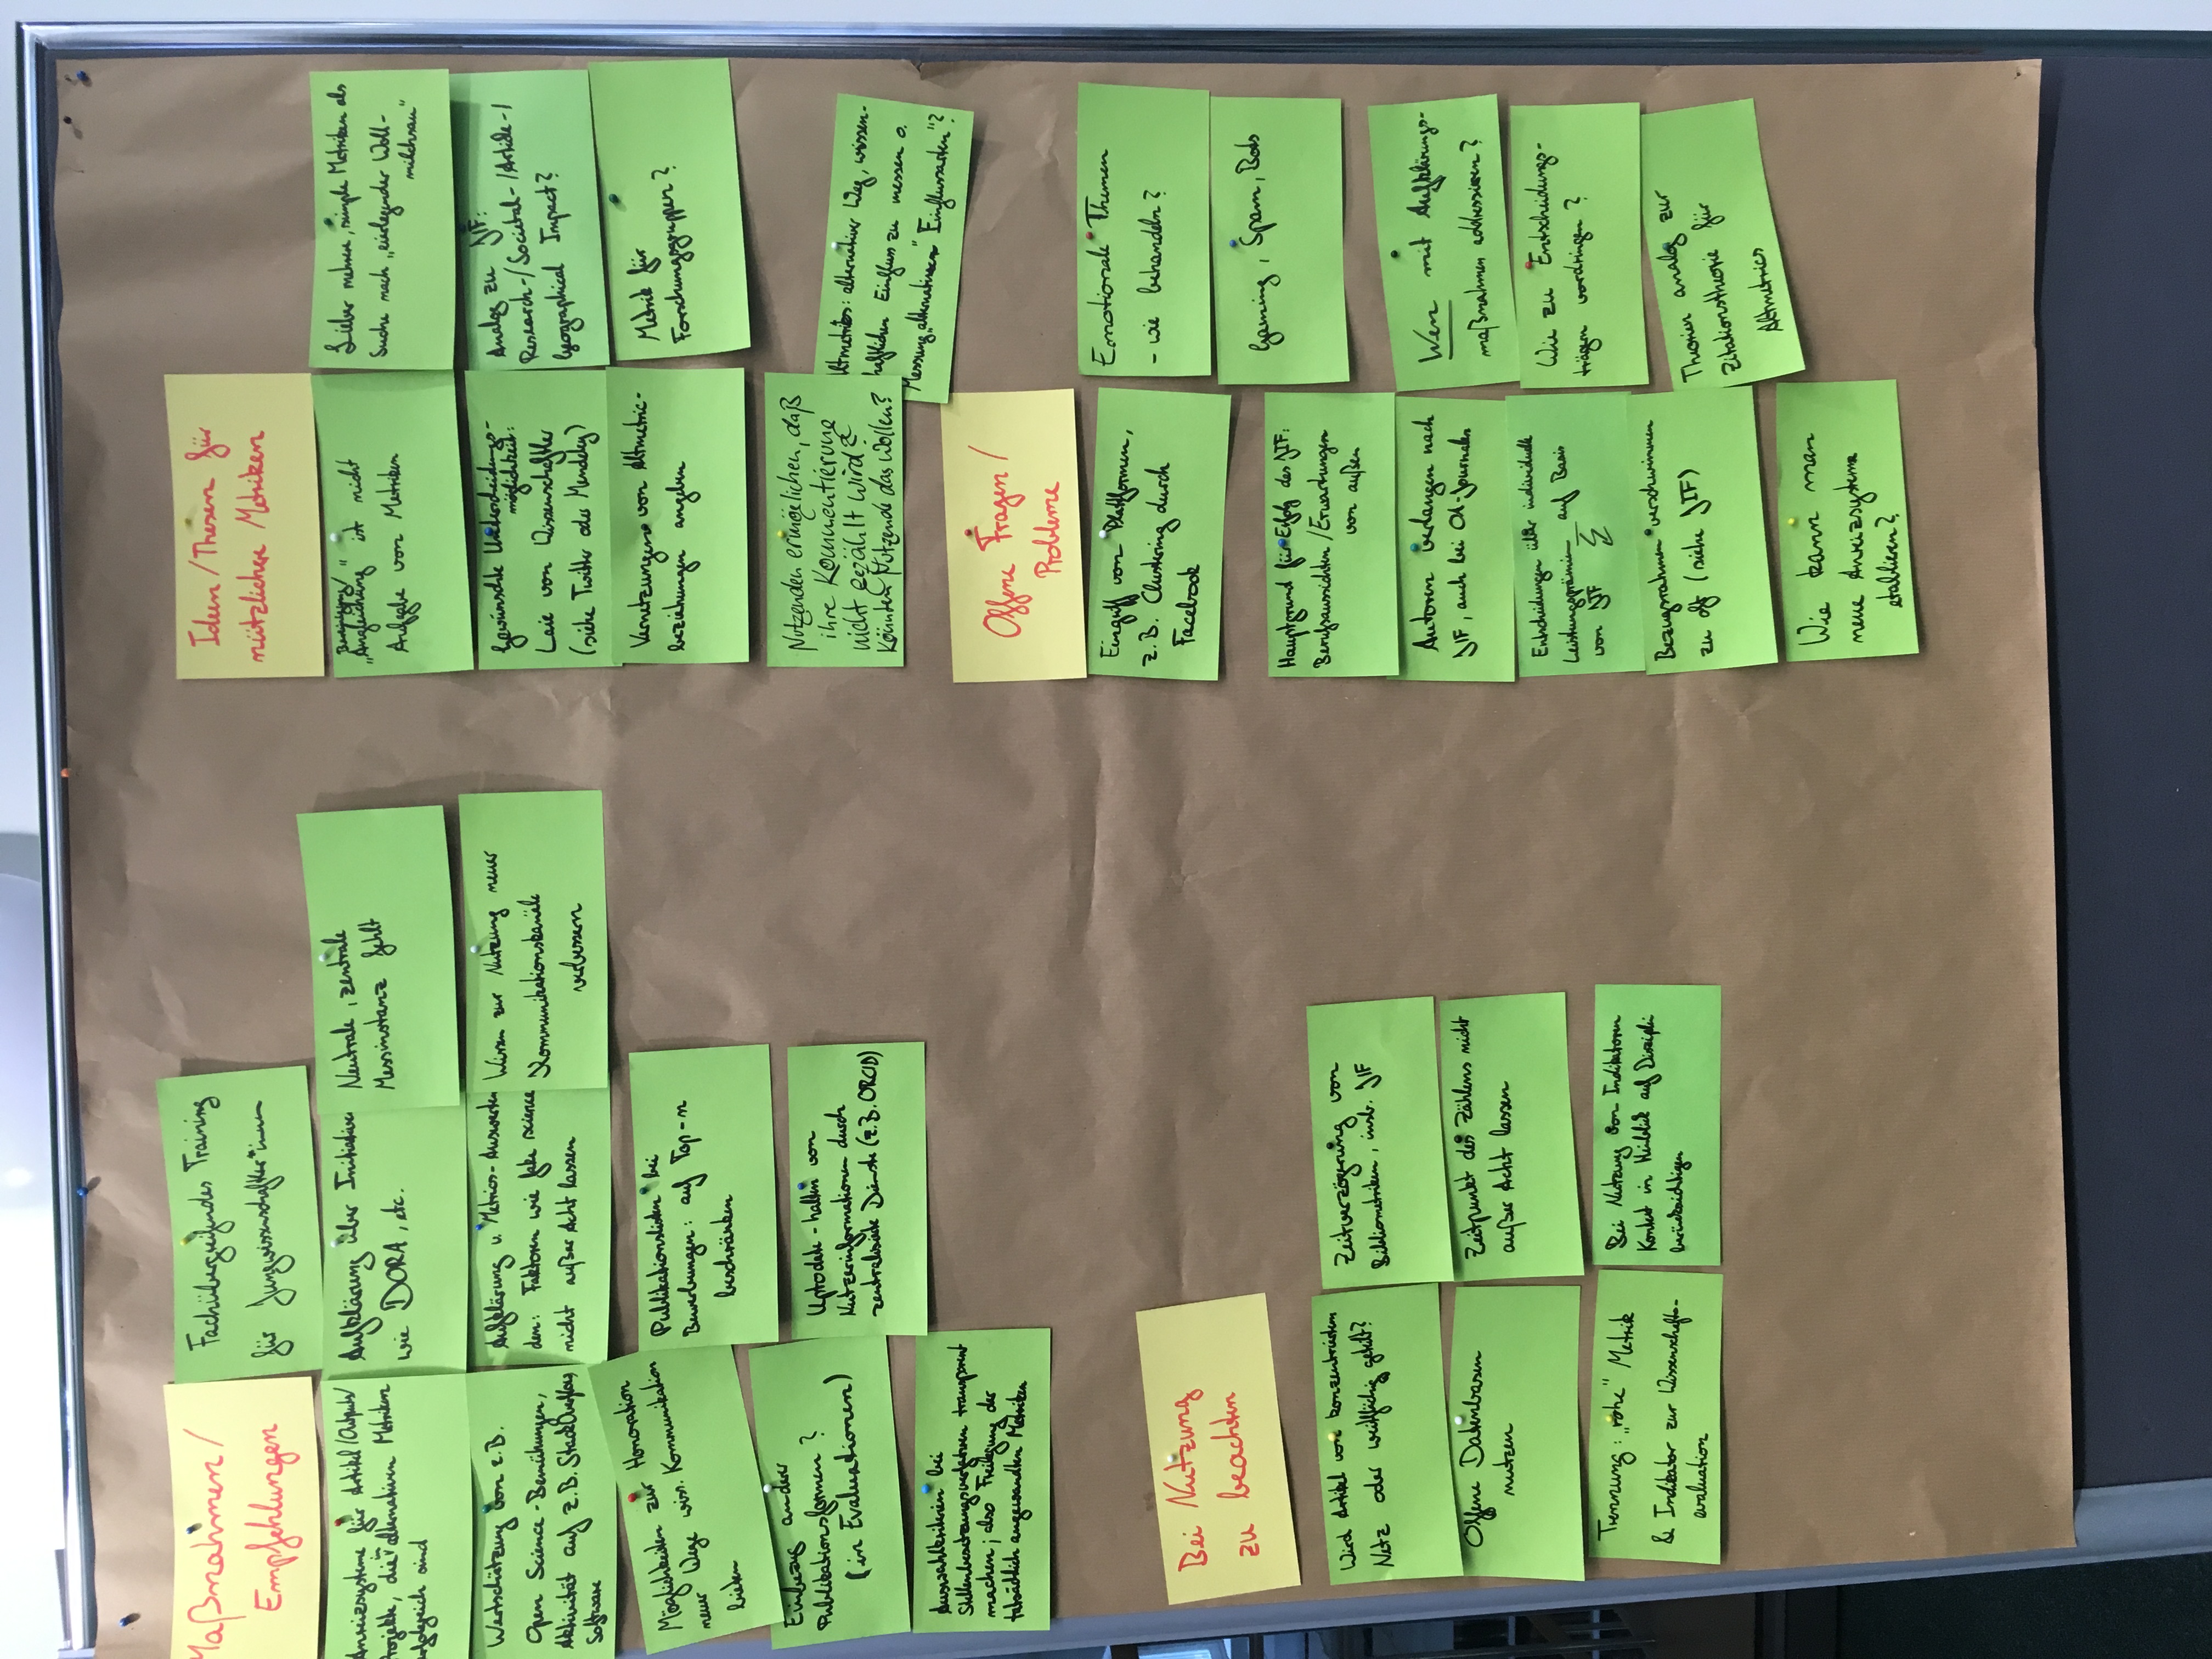 Maßnahmen /
Empfehlungen
Fachübergreifendes Training
für Jungwissenschaftler*innen
Anreizsysteme für Artikel/Outputs/
Projekte, die in alternativen Metriken
erfolgreich sind
Aufklärung über Initiativen
wie DORA, etc.
Neutrale, zentrale
Messinstanz fehlt
Wertschätzung von z.B.
Open Science-Bemühungen,
Aktivität auf z.B. StackOverflow,
Software
Aufklärung v. Metrics-Auswerten
den: Faktoren wie fake science
nicht außer Acht lassen
Wissen zur Nutzung neuer
Kommunikationskanäle
verbessern
Möglichkeiten zur Honoration
neuer Wege wiss. Kommunikation
bieten
Publikationslisten bei
Bewerbungen: auf Top-n
beschränken
Einbezug anderer
Publikationsformen?
(in Evaluationen)
Uptodate-halten von
Nutzerinformationen durch
zentralisierte Dienste (z.B. ORCID)
Auswahlkriterien bei
Stellenbesetzungsverfahren transparent
machen; also Freilegung der
tatsächlich angewandten Metriken
Bei Nutzung
zu beachten
Wird Artikel von konzentriertem
Netz oder weitflächig geteilt?
Zeitverzögerung von
Bibliometriken, insb. JIF
Offene Datenbasen
nutzen
Zeitpunkt des Zählens nicht
außer Acht lassen
Trennung: „rohe" Metrik
& Indikator zur Wissenschafts-
evaluation
Bei Nutzung von Indikatoren
Kontext im Hinblick auf Disziplin
berücksichtigen
Ideen / Thesen für
nützlichere Metriken
Bereinigung/
„Angleichung" ist nicht
Aufgabe von Metriken
Lieber mehrere, simple Metriken als
Suche nach „eierlegender Woll-
milchsau"
Gewünschte Unterscheidungs-
möglichkeit:
Laie von Wissenschaftler
(siehe Twitter oder Mendeley)
Analog zu JIF:
Research-/Societal-/Article-/
Geographical Impact?
Vernetzungen von Altmetric-
beziehungen angeben
Metrik für
Forschungsgruppen?
Nutzenden ermöglichen, daß
ihre Kommentierung
nicht gezählt wird?
Könnten Nutzende das wollen?
Altmetrics: alternativer Weg, wissen-
schaftlichen Einfluss zu messen o.
Messung „alternativer" Einflussarten"?
Offene Fragen /
Probleme
Eingriff von Plattformen,
z.B. Clustering durch
Facebook
Emotionale Themen
- wie behandeln?
Gaming, Spam, Bots
Hauptgrund für Erfolg des JIF:
Berufsaussichten / Erwartungen
von außen
Autoren verlangen nach
JIF, auch bei OA-Journalen
Wen mit Aufklärungs-
maßnahmen addressieren?
Entscheidungen über individuelle
Leistungsprämien auf Basis
von JIF
Wie zu Entscheidungs-
trägern vordringen?
Bezugsrahmen verschwimmen
zu oft (siehe JIF)
Theorien analog zur
Zitationstheorie für
Altmetrics
Wie kann man
neue Anreizsysteme
etablieren?